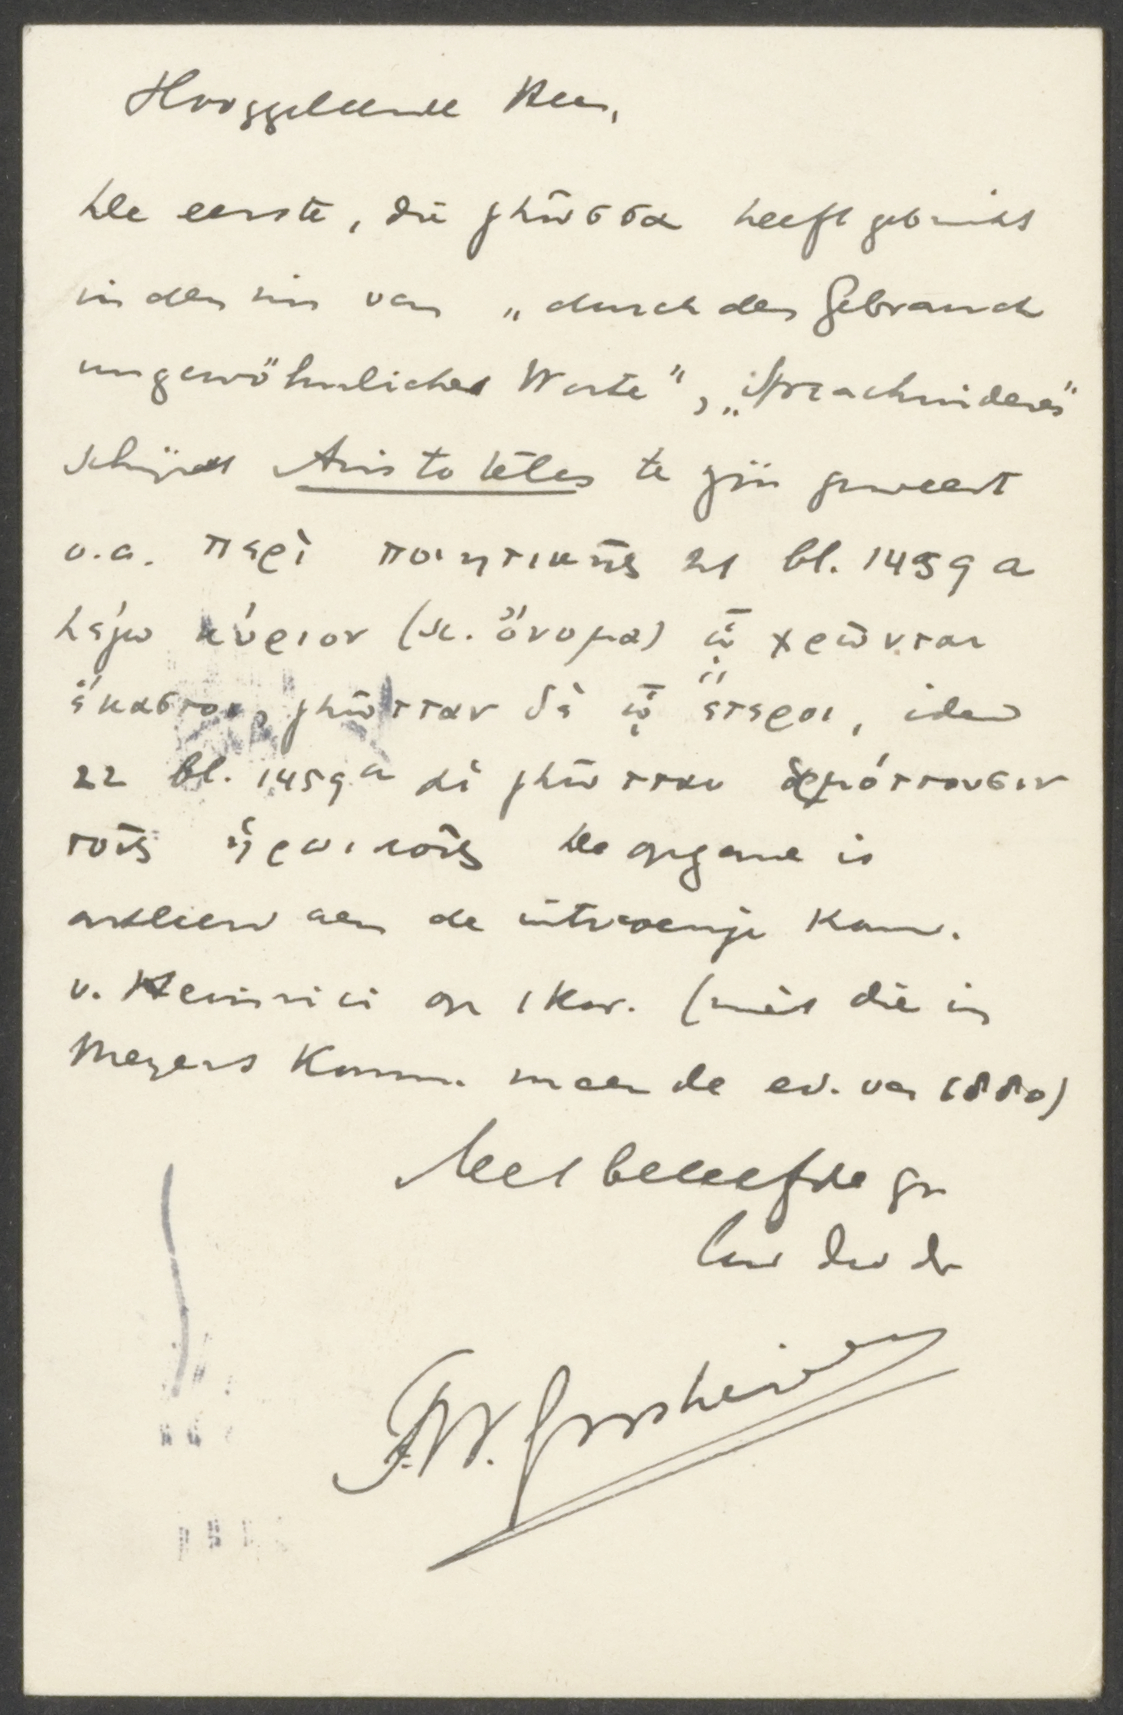 Hooggeleerde Heer,
De eerste, die γλῶσσα heeft gebruikt
in den zin van „durch den Gebrauch
ungewöhnliches Worte”, „Sprachwideres”
schijnt Aristoteles te zijn geweest
o.a. περὶ ποιητικῆς 21 bl. 1459 a
λέγω κύριον (sc. ὄνομα) ᾧ χρῶνται
ἕκαστοι, γλῶτταν δὲ ᾧ ἕτεροι, idem
22 bl. 1459 a αἱ γλῶτται ἁρμόττουσιν
τοῖς ἡρωικοῖς De opgave is
ontleend aan de uitvoerige Komm.
v. Heinrici op 1 Kor. (niet die in
Meyers Komm. maar de ed. van 1880)
Met beleefde gr
Uw dw dr
F.W. Grosheide